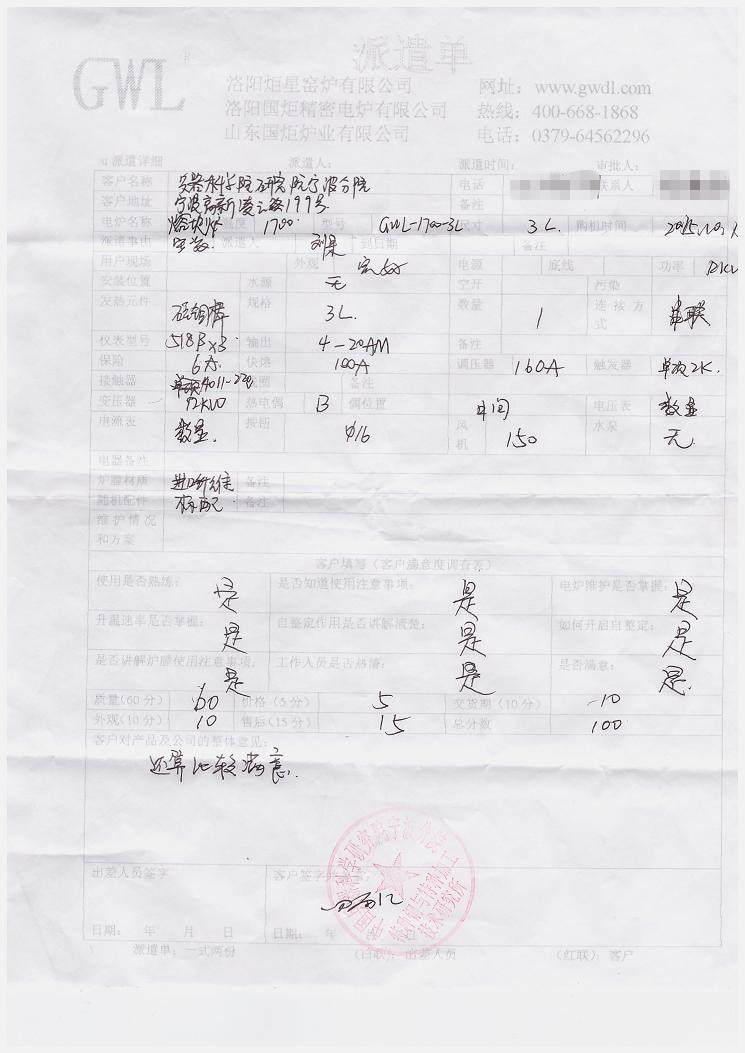 派遣单
GWL R
洛阳炬星窑炉有限公司 网址：www.gwdl.com
洛阳国炬精密电炉有限公司 热线：400-668-1868
山东国炬炉业有限公司 电话：0379-64562296
u派遣详细 派遣人： 派遣时间： 审批人：
客户名称 科学院研究院宁波分院 电话 联系人
客户地址 宁波高新凌云路199号 备注
电炉名称 温度 1700 型号 GWL-1700-3L 尺寸 3L 购机时间
派遣事由 派遣人 到日期 备注
用户现场 外观 完好 电源 底线 功率 12KW
安装位置 水源 无 空开 污染
发热元件 硅钼棒 规格 3L 数量 1 连接方式 串联
仪表型号 518P×3 输出 4-20AM 备注
保险 6A 快熔 100A 调压器 160A 触发器 单项2K
接触器 4011-220 备注
变压器 热电偶 B 偶位置 中间 电压表 数显
电流表 数显 按钮 φ16 风机 150 水泵 无
电器备注
炉膛材质 进口纤维 备注
随机配件 标配 备注
维护情况和方案
客户填写（客户满意度调查表）
使用是否熟练： 是 是否知道使用注意事项： 是 电炉维护是否掌握： 是
升温速率是否掌握： 是 自整定作用是否讲解清楚： 是 如何开启自整定： 是
是否讲解炉膛使用注意事项： 是 工作人员是否热情： 是 是否满意： 是
质量(60分) 60 价格（5分） 5 交货期（10分） 10
外观(10分) 10 售后(15分) 15 总分数 100
客户对产品及公司的整体意见：
还算比较满意.
出差人员签字 客户签字
日期： 年 月 日 日期： 年 月 日
派遣单：一式两份 （白联）：出差人员 （红联）：客户